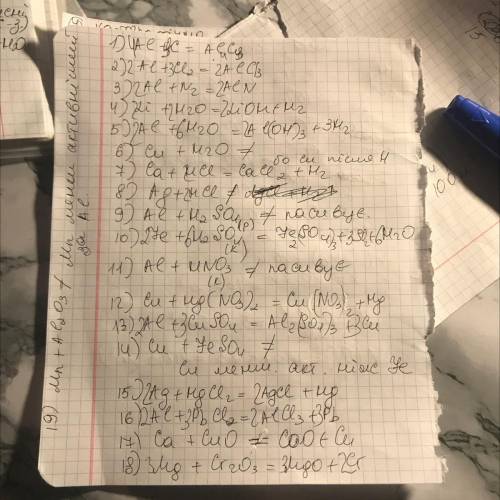 1) 4Al + 3C = Al4C3
2) 2Al + 3Cl2 = 2AlCl3
3) 2Al + N2 = 2AlN
4) 2Li + 2H2O = 2LiOH + H2
5) 2Al + 6H2O = 2Al(OH)3 + 3H2
6) Cu + H2O ≠
бо Cu після H
7) Ca + 2HCl = CaCl2 + H2
8) Ag + HCl ≠
9) Al + H2SO4 (р) ≠ пасивує.
10) 2Fe + 6H2SO4 (к) = Fe2(SO4)3 + 3SO2 + 6H2O
11) Al + HNO3 (к) ≠ пасивує
12) Cu + Hg(NO3)2 = Cu(NO3)2 + Hg
13) 2Al + 3CuSO4 = Al2(SO4)3 + 3Cu
14) Cu + FeSO4 ≠
Cu менш. акт. ніж Fe
15) 2Ag + HgCl2 = 2AgCl + Hg
16) 2Al + 3PbCl2 = 2AlCl3 + 3Pb
17) Ca + CuO = CaO + Cu
18) 3Mg + Cr2O3 = 3MgO + 2Cr
19) Mn + Al2O3 ≠ Mn менш активніший
за Al